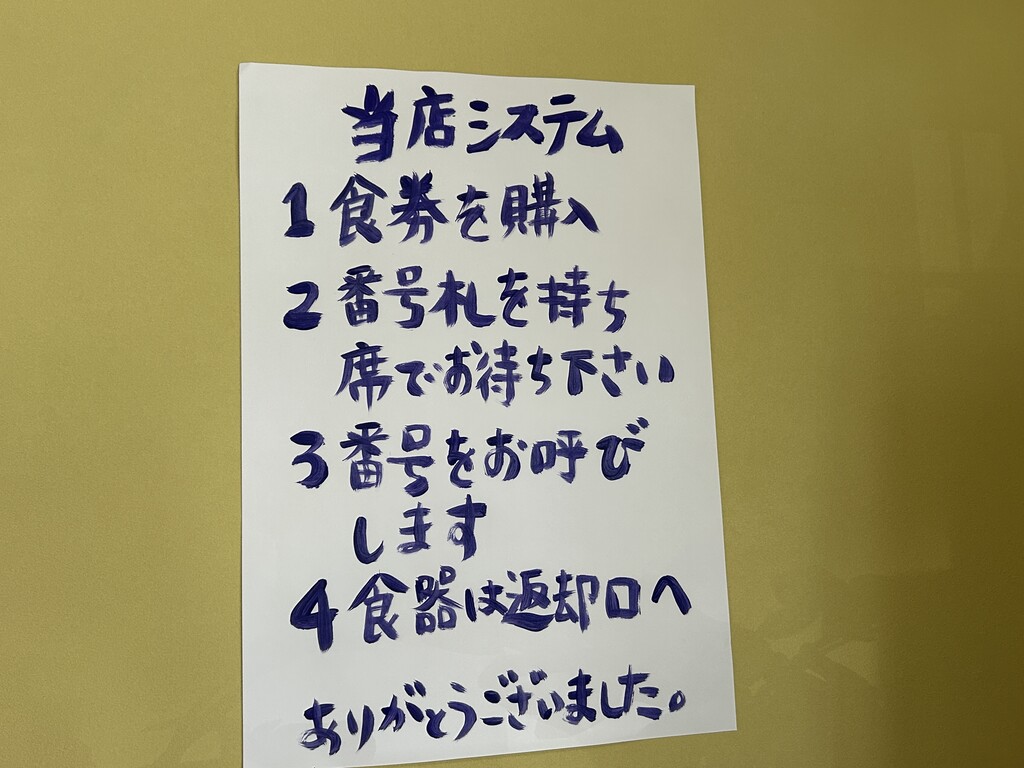 当店システム
1 食券を購入
2 番号札を持ち
席でお待ち下さい
3 番号をお呼び
します
4 食器は返却口へ
ありがとうございました。